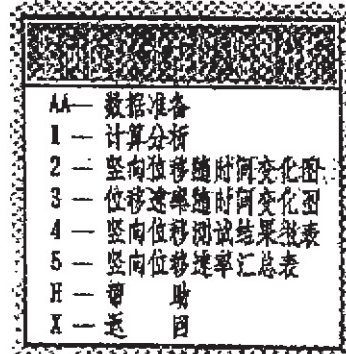 AA— 数据准备
1 — 计算分析
2 — 竖向位移随时间变化图
3 — 位移速率随时间变化图
4 — 竖向位移测试结果报表
5 — 竖向位移速率汇总表
H — 帮 助
X — 返 回